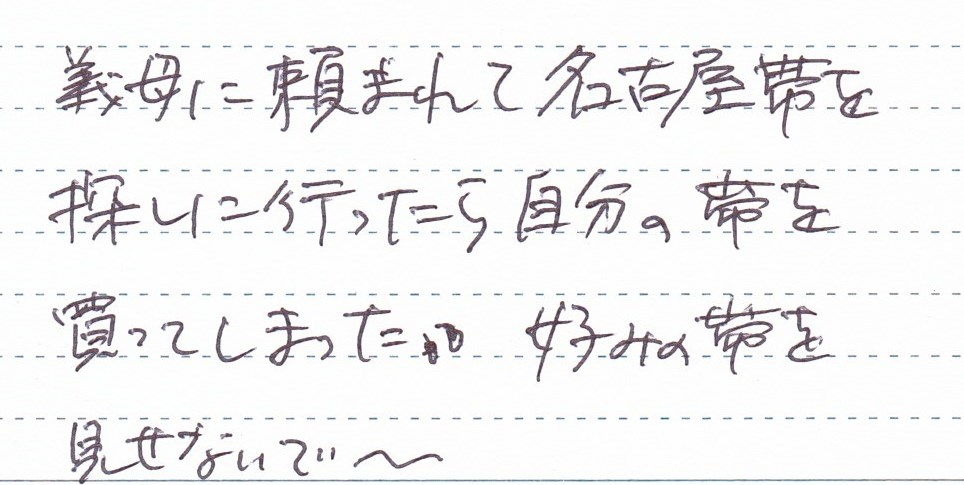 義母に頼まれて名古屋帯を
探しに行ったら自分の帯を
買ってしまった。好みの帯を
見せないで〜